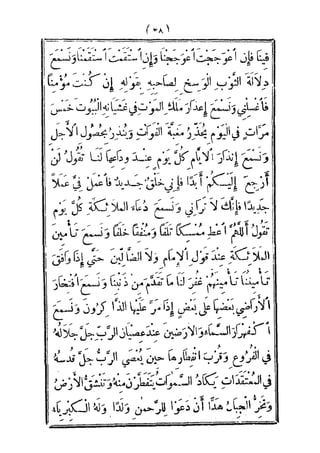 (٣٨)
فينا فإن أعوججت أعوججنا وإن استقمت استقمنا ونسمع
دلالة الثوب الوسخ لصاحبه بقوله إن كنت مؤمنا
فاغسلني ونسمع إعذار ملك الموت في غشيانه البيوت خمس
مرات في اليوم يحذر مغبة الفوات وينذر بحصول الأجل
ونسمع إنذار الأيام كل يوم عند وداعها لنا تقول لن
أرجع إليكم أبدا فإني خلق جديد فاعمل فيّ عملاً
جديدا فإنك لا تراني ونسمع دعاء الملائكة كل يوم
تقول اللهم أعط ممسكا تلفا ومنفقا خلفا ونسمع تأمين
الملائكة عند قول الإمام ولا الضالين حتى إذا وافق
تأميننا تأمينهم غفر لنا ما تقدم من ذنبنا ونسمع افتخار
الأراضي بعضها على بعض إذا مر عليها الذاكرون ونسمع
اكفهرار السماء والأرضين عند عصيان الرب جل جلاله
في الفروع وقرب انفطارها حين يعصي الرب جل قدسه
في المعتقدات يكاد السموات يتفطرن منه وتنشق الأرض
وتخر الجبال هدا أن دعوا للرحمن ولدا وله الكبرياء